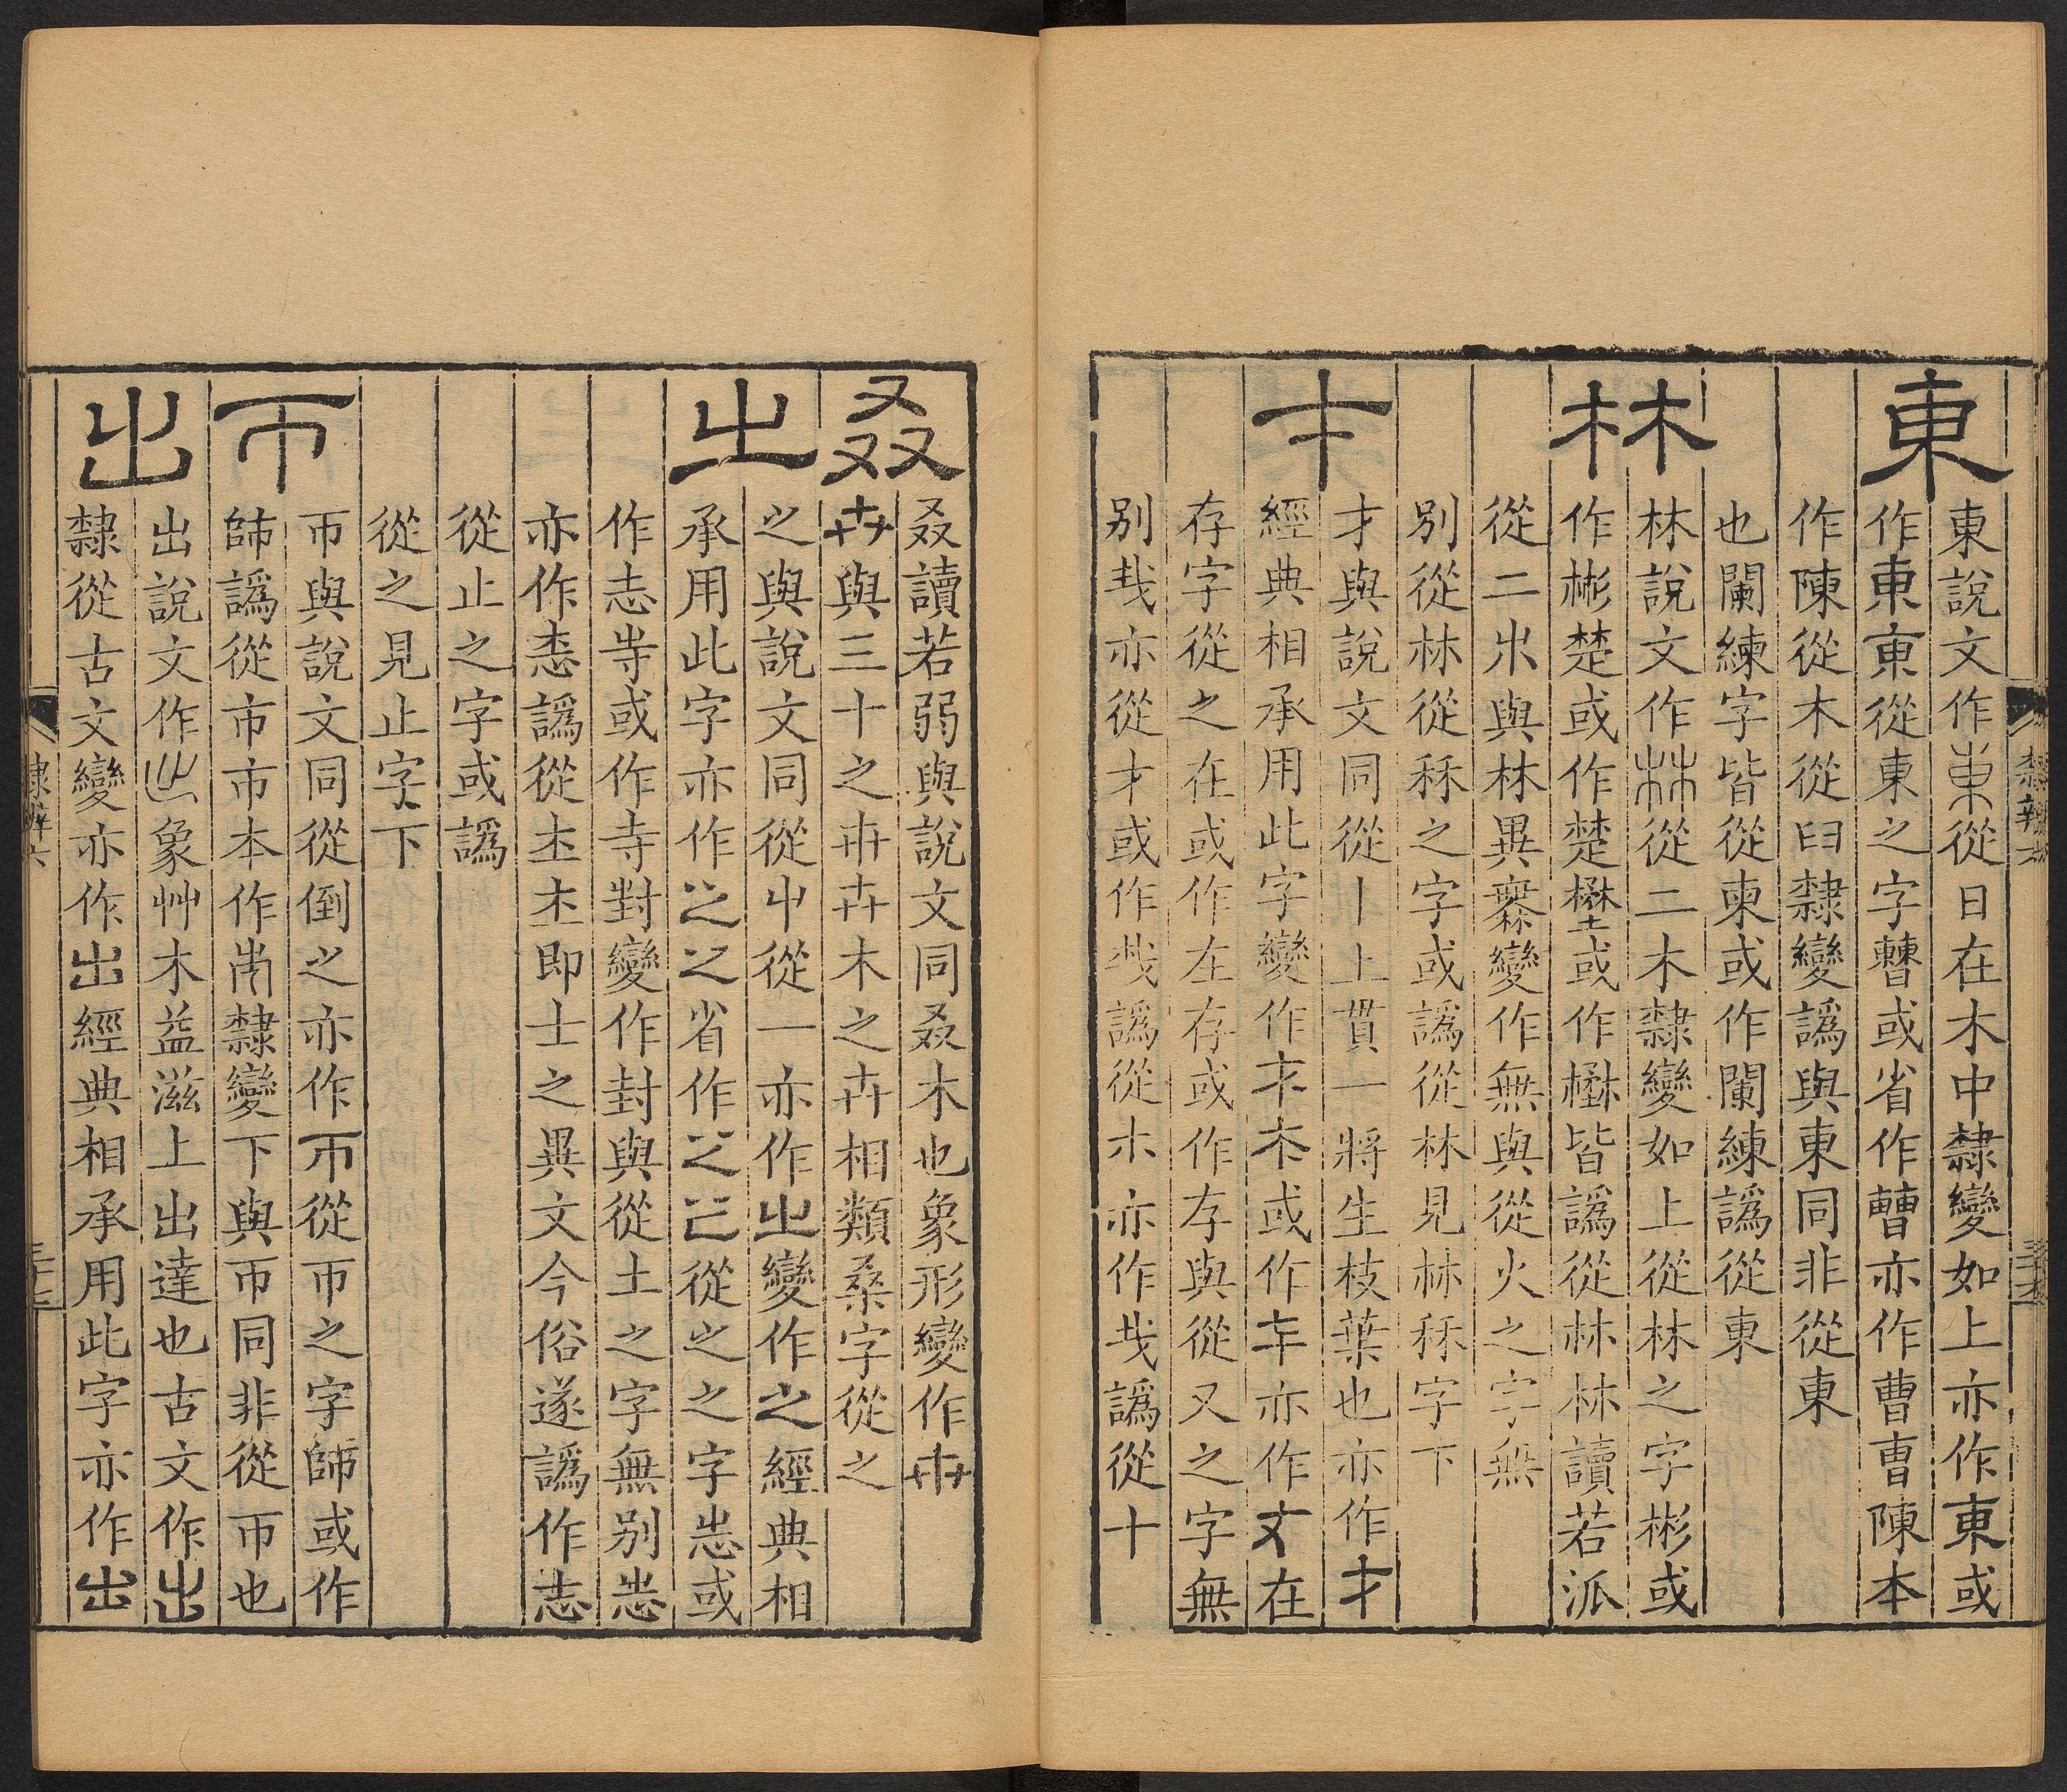 東
東說文作東從日在木中隸變如上亦作東或
作東東從東之字䡬或省作曹亦作曹曺陳本
作陳從木從臼隸變譌與東同非從東
也闌練字皆從柬或作闌練譌從東
林
林說文作林從二木隸變如上從林之字彬或
作彬楚或作楚樊或作樊皆譌從林林讀若派
從二𣎳與林異爨變作無與從火之字無
別從林從秝之字或譌從林見林秝字下
才
才與說文同從丨上貫一將生枝葉也亦作才
經典相承用此字變作或作亦作在
存字從之在或作在存或作存與從又之字無
別𢦏亦從才或作譌從亦作譌從十
叒
叒讀若弱與說文同叒木也象形變作卉
卉與三十之卅卉木之卉相類桑字從之
㞢
之與說文同從屮從一亦作㞢變作之經典相
承用此字亦作之之省作從之之字志或
作志寺或作寺對變作封與從土之字無別志
亦作譌從士之異文今俗遂譌作志
從止之字或譌
從之見止字下
帀
帀與說文同從倒之亦作帀從帀之字師或作
師譌從市市本作隸變下與帀同非從帀也
出
出說文作出象艸木益滋上出達也古文作出
隸從古文變亦作出經典相承用此字亦作出
隸辨六
三十七